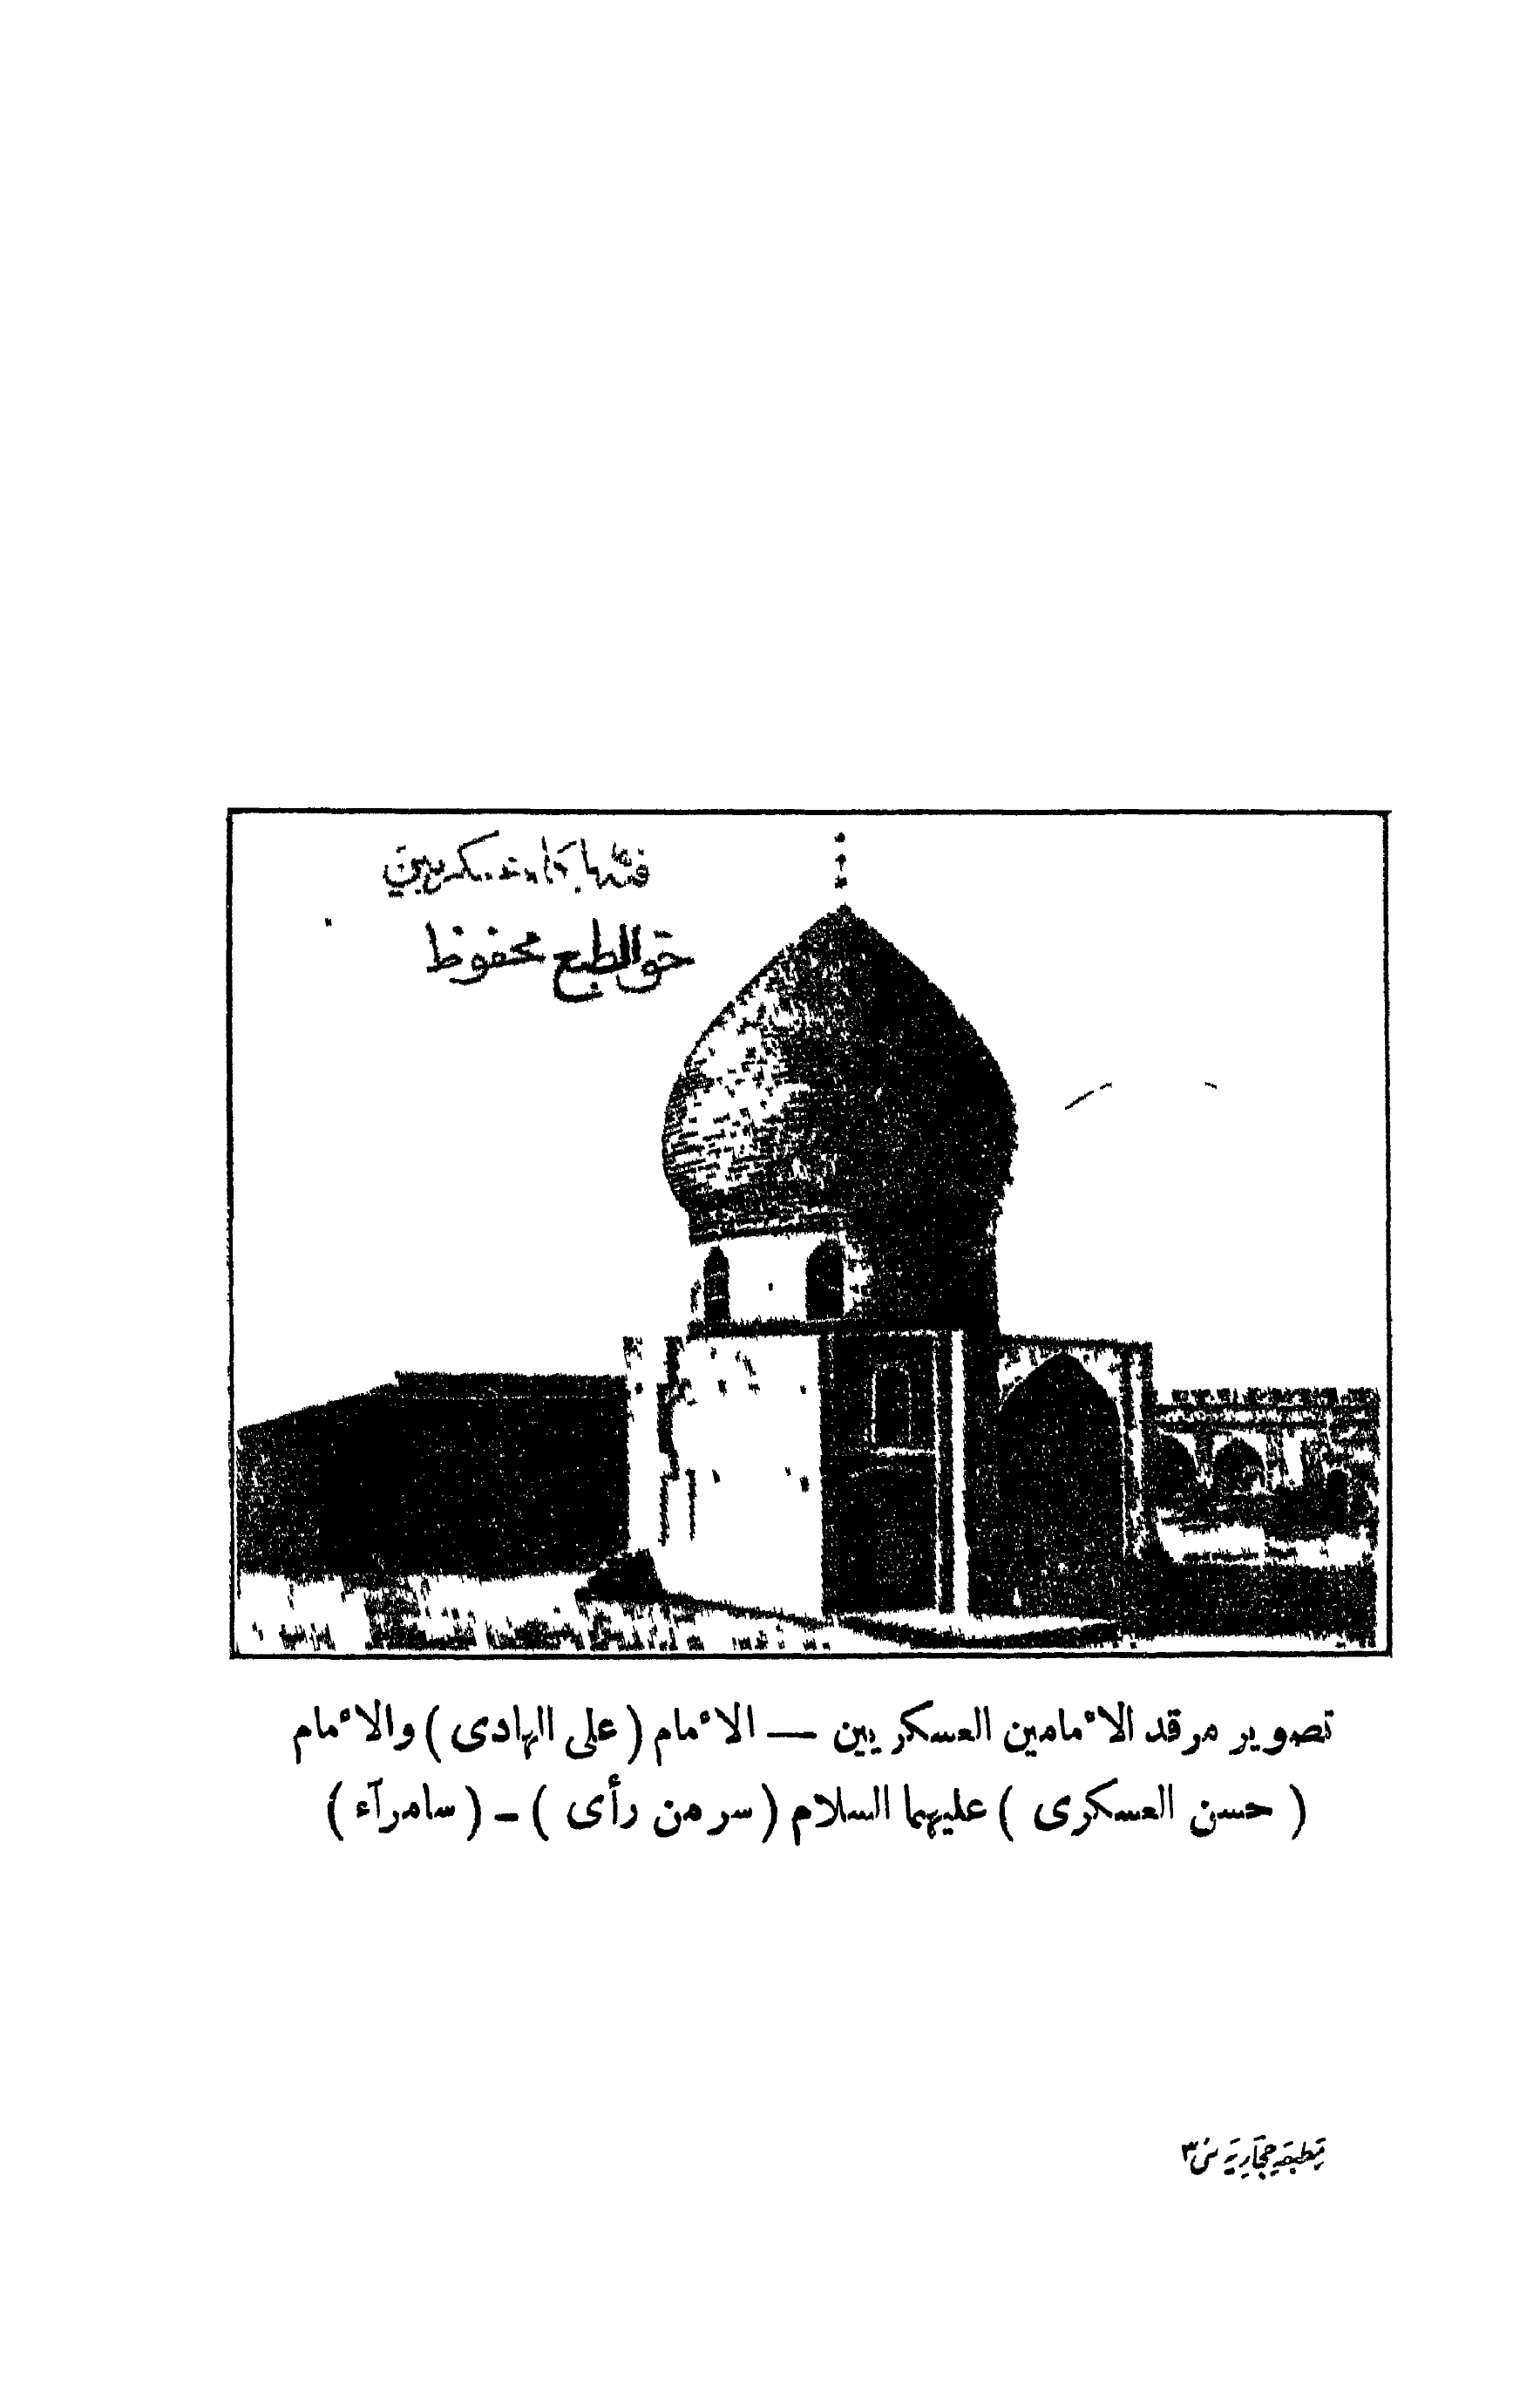 حق الطبع محفوظ
تصوير مرقد الأمامين العسكريين — الأمام (على الهادى) والأمام
( حسن العسكرى ) عليهما السلام (سر من رأى ) - ( سامرآء )